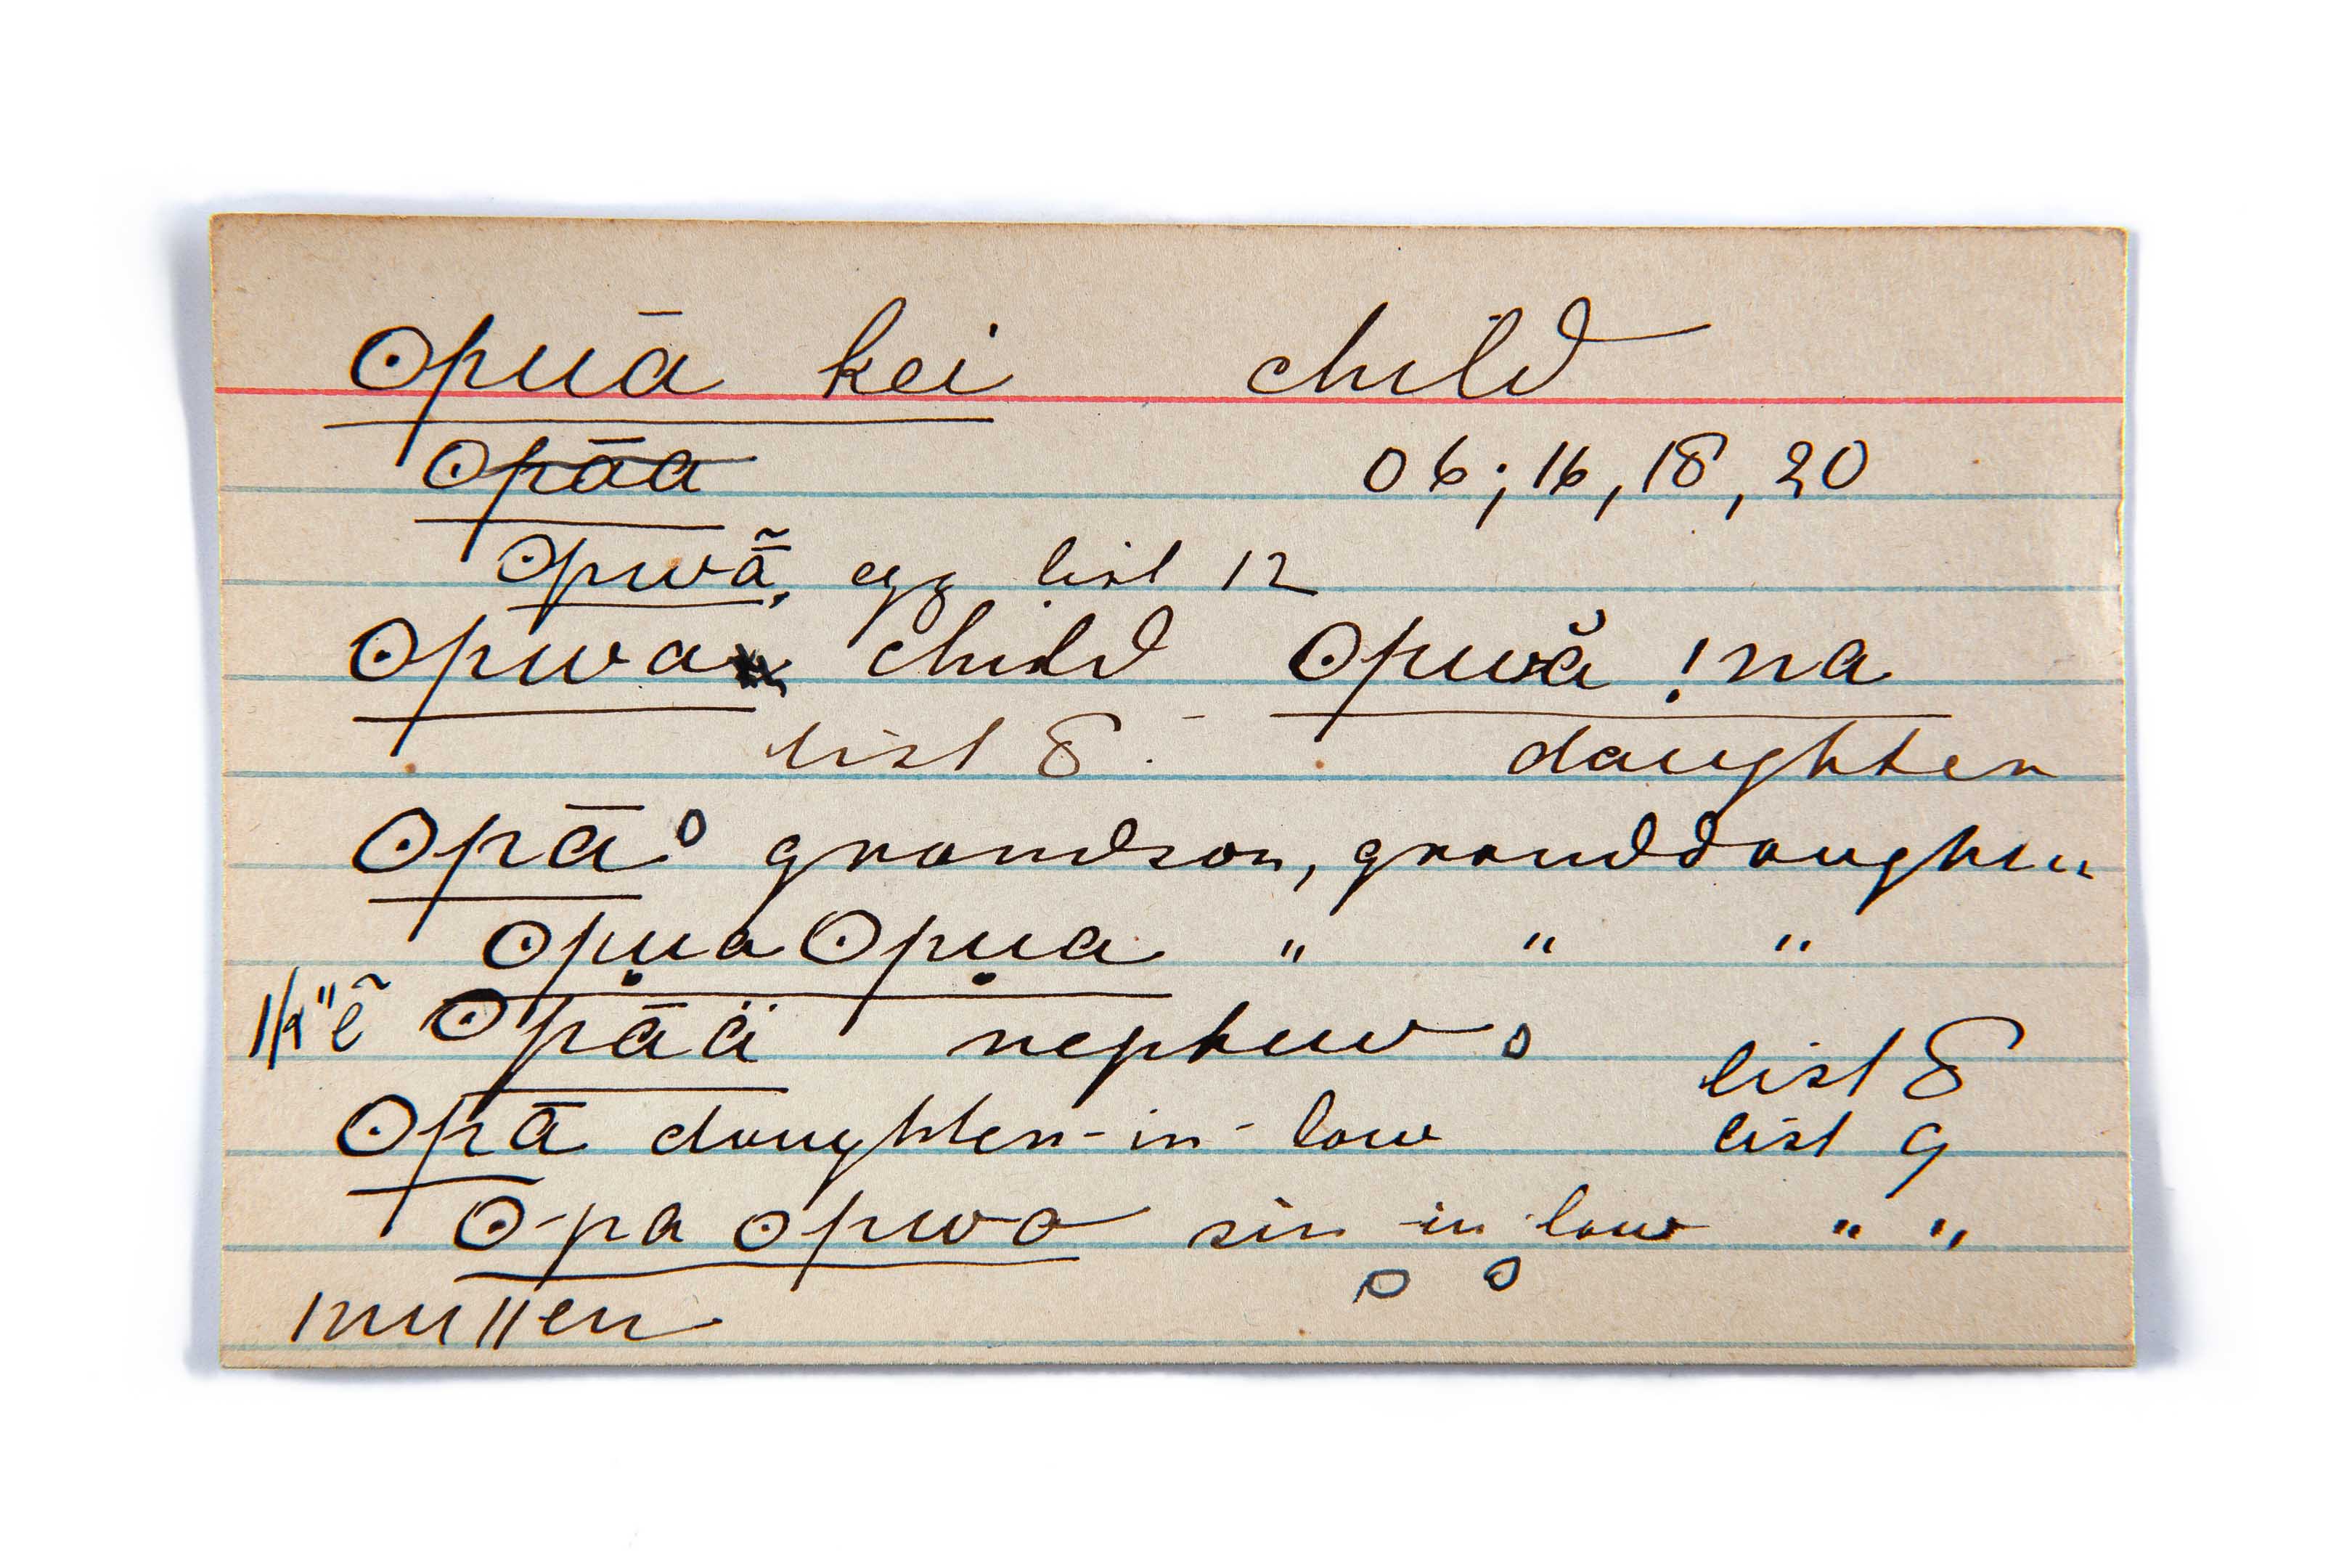 ʘpuā kei child
ʘpāa 06; 16, 18, 20
ʘpwā̃, egg list 12
ʘpwa child ʘpwă !na
list 8. daughter
ʘpā grandson, granddaughter
ʘp̣ua ʘp̣ua " " "
ʘpāä nephew list 8
ʘpā daughter-in-law list 9
ʘ-pa ʘpwa sin-in law " "